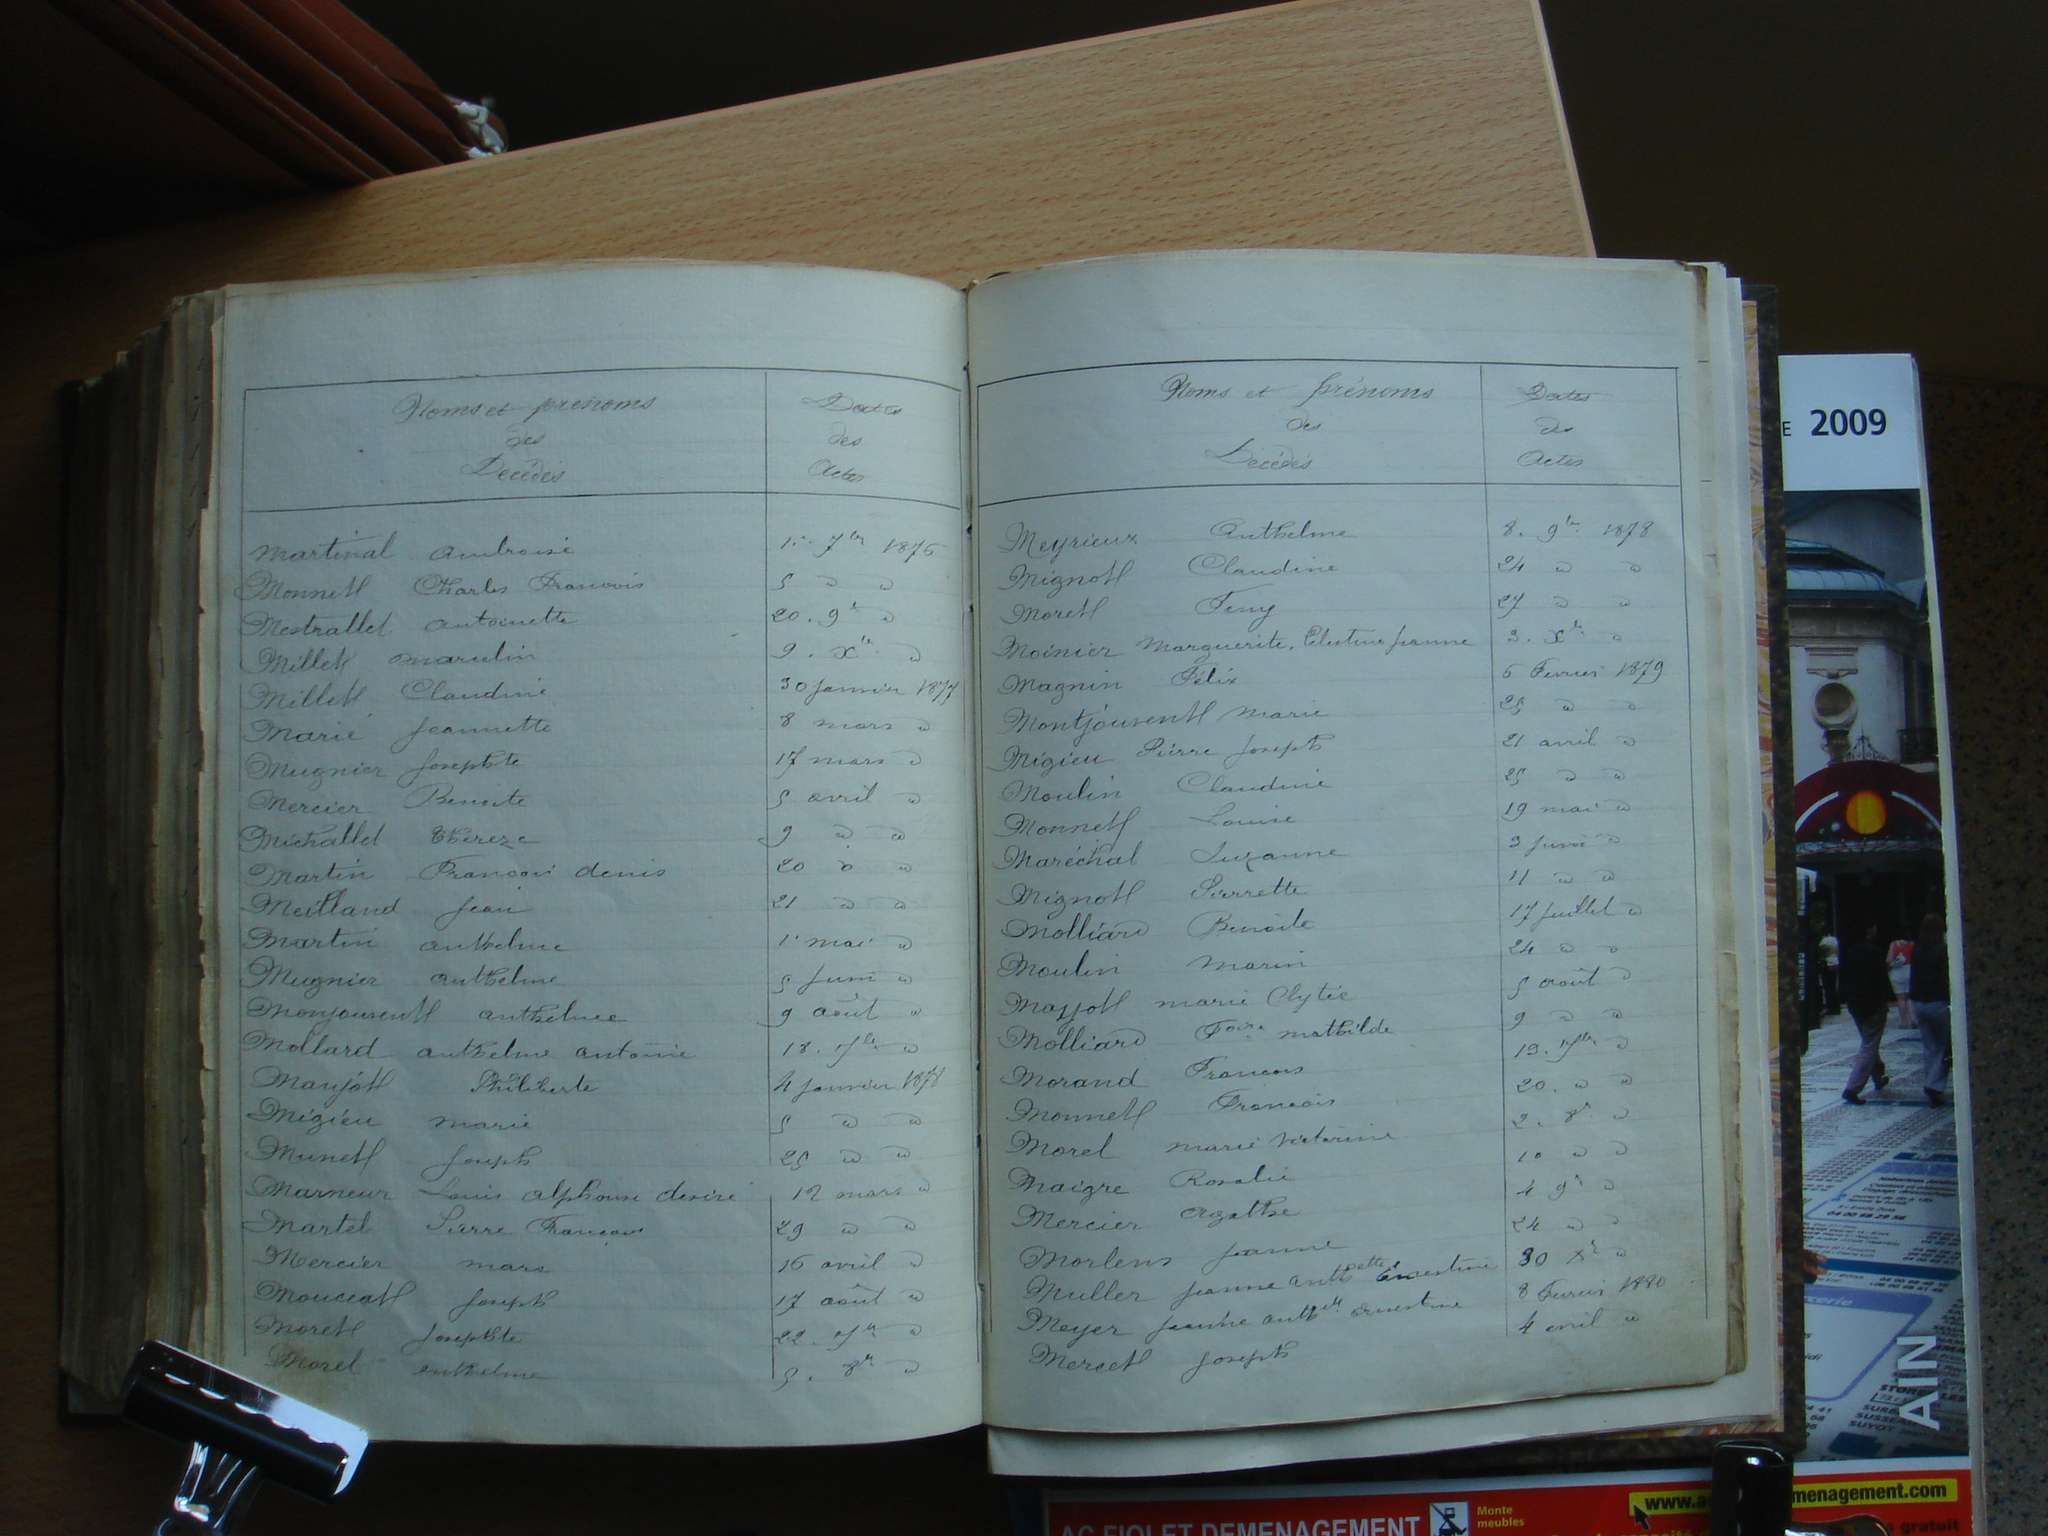 Noms et prénoms Dates
des des
Décédés Actes
Martinal Ambroise 1er 7bre 1876
Monnett Charles François 5 " "
Mestrallet antoinette 20. 9e "
Millet 9. Xbre "
Millet Claudine 30 Janvier 1877
Marie Jeannette 8 mars "
Mugnier Josephte 17 mars "
Mercier Benoite 5 avril "
Michallet théreze 9 " "
Martin François denis 20 " "
Meilland Jean 21 " "
Martin anthelme 1er mai "
Mugnier anthelme 5 Juin "
Monjouvent anthelmee 9 août "
Mollard anthelme antoine 18. 7bre "
Philiberte 4 janvier 1878
Migieu marie 5 " "
Munet Joseph 25 " "
Marneur Louis alphonse desiré 12 mars "
Martel Pierre François 29 " "
Mercier marc 16 avril "
Joseph 17 août "
Moret Josephte 22. 7bre "
Morel anthelme 5. 8bre "
Noms et prénoms Dates
des des
Décédés Actes
Meyrieux Anthelme 8. 9bre 1878
Mignot Claudine 24 " "
Moret Feny 27 " "
Moinier Marguerite, Jeanne 3. Xbre "
Magnin Félix 6 Fevrier 1879
Montjouvent marie 25 " "
Migieu Pierre Joseph 21 avril "
Moulin Claudine 25 " "
Monnet Louise 19 mai "
Maréchal Suzanne 3 Juin "
Mignot Pierrette 11 " "
Molliard Benoite 17 Juillet "
Moulin marin 24 " "
marie Clytie 5 août "
Molliard mathilde 9 " "
Morand François 19. 7bre "
Monnet François 20. " "
Morel marie victorine 2. 8bre "
Maigre Rosalie 10 " "
Mercier Agathe 4 9e "
Morlens Jeanne 24 " "
Muller Jeanne Anthette Ernestine 30 Xe "
Meyer Jeanne anthette ernestine 8 Fevrier 1880
Joseph 4 avril "
2009
AIN
AC FIOLET DEMENAGEMENT
Monte
meubles
gratuit